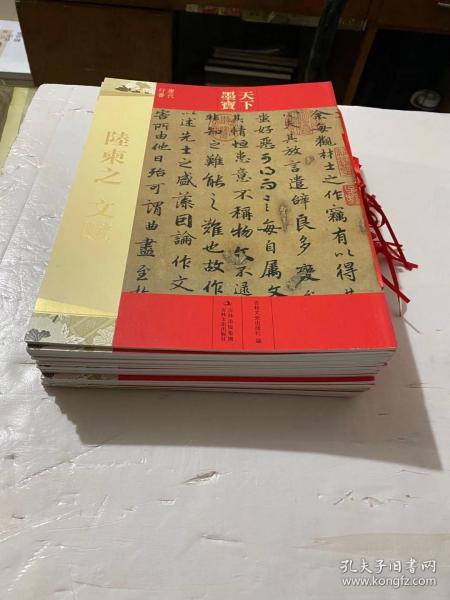 天下
墨寶
唐代
行書
陸柬之 文
余每觀材士之作竊有以得
夫其放言遣辭良多變
蚩好惡可得而言每自屬文
其情恒患意不稱物文不逮
非知之難能之難也故作
以述先士之盛藻因論作文
害所由他日殆可謂曲盡其
吉林出版集團
吉林文史出版社
吉林文史出版社 編
孔夫子旧书网
www.kongfz.com